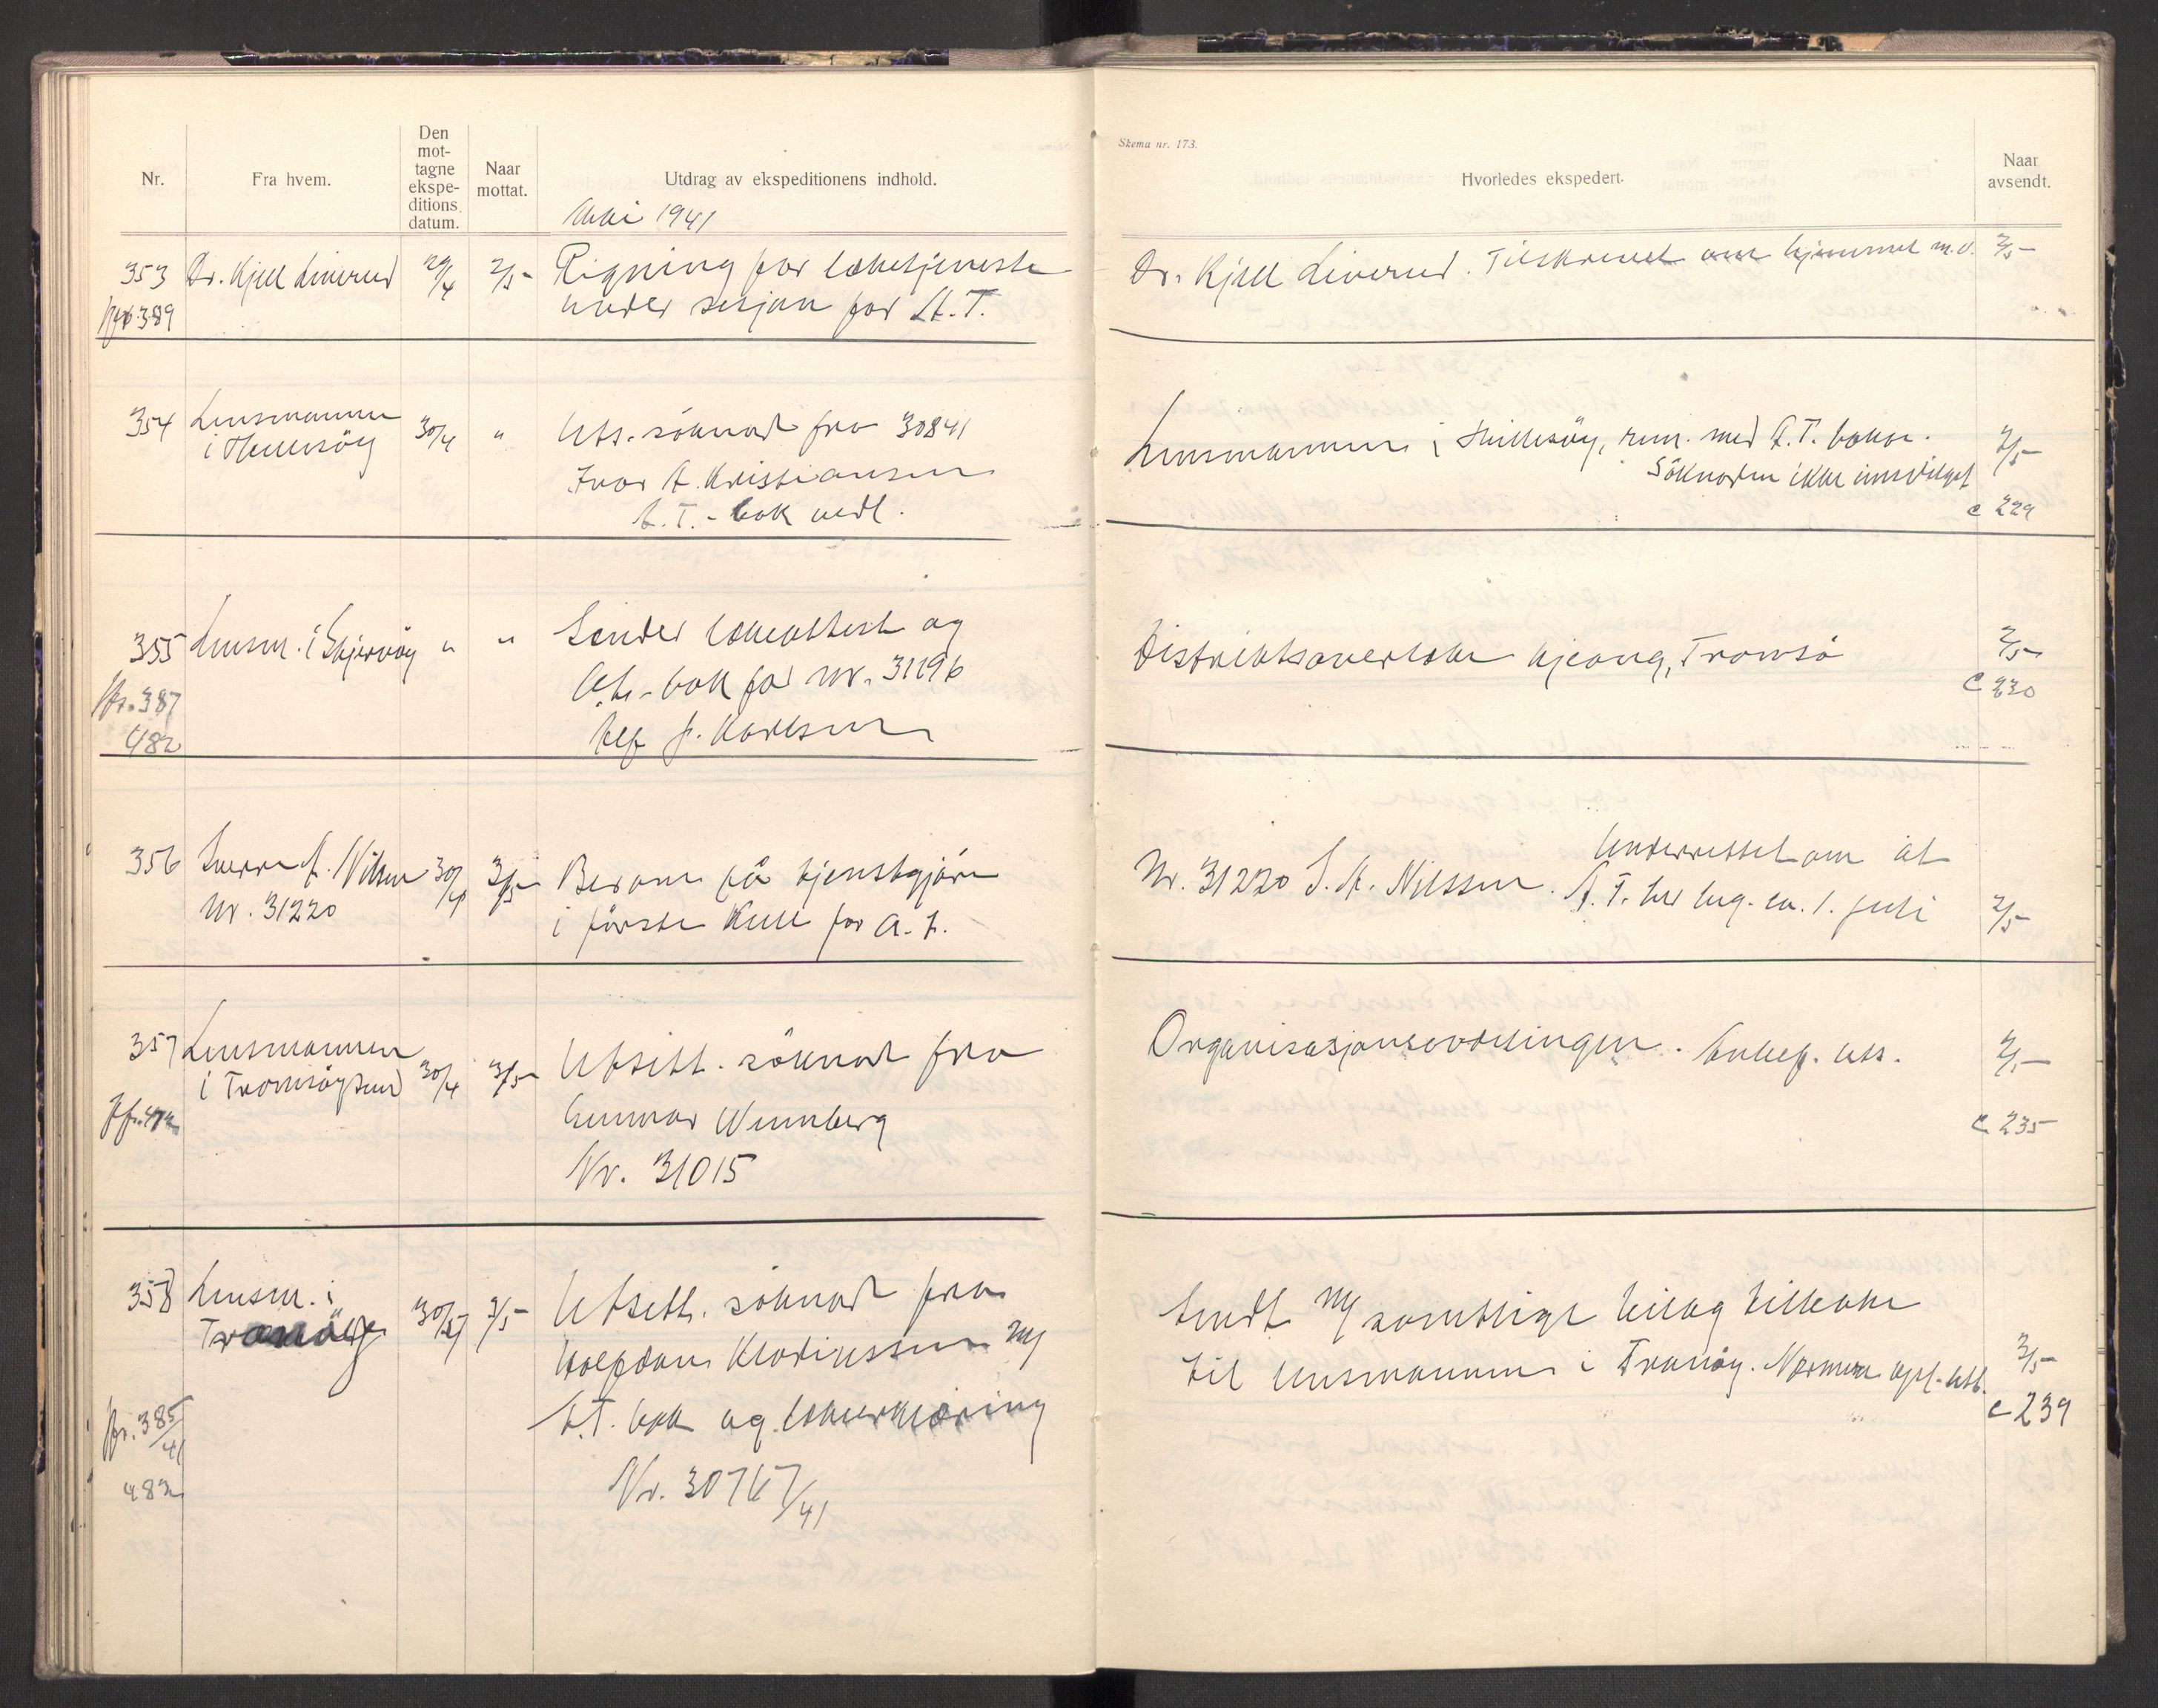 Nr.
Fra hvem.
Den
mot-
tagne
ekspe-
ditions
datum.
Naar
mottat.
Utdrag av ekspeditionens indhold.
Mai 1941
353
Dr. Kjell Liverud
29/4
2/5
Rigning for læketjeneste
under sesjon for A.T.
389
354
Lensmannen
i Hillesöy
30/4
"
Uts. söknad fra 30841
Ivar A. Kristiansen
A.T.-bok vedl.
355
Lensm. i Skjervöy
"
"
Sender lækeattest og
A.t.-bok for nr. 31196
Alf J. Karlsen
Jfr. 387
482
356
Sverre A. Nilsen
Nr. 31220
30/4
3/5
Beram på tjenestgjöre
i förste kull for A.T.
357
Lensmannen
i Tromsöysund
30/4
3/5
Utsett. söknad fra
Gunnar Wennberg
Nr. 31015
358
Lensm. i
Tranöy
30/4
3/5
Utsett. söknad fra
Halfdan Klodiussen m/
A.T. bok og lækeerklæring
Nr. 30767/41
Jfr. 385/41
483
Skema nr. 173.
Hvorledes ekspedert.
Naar
avsendt.
Dr. Kjell Liverud. Tilskrevet om hjemmel m.v.
2/5
Lensmannen i Hillesöy, rem. med A.T. boken.
Söknaden ikke innvilget
2/5
c 229
Distriktsoverlæke Kjeang, Tromsö
2/5
c 230
Nr. 31220 S. A. Nilssen.
Underrettet om at
A.T. tar beg. ca. 1. juli
2/5
Organisasjonsavdelingen. Anbef. uts.
2/5
c 235
Sendt m/ samtlige bilag tilbake
til lensmannen i Tranöy. Nærmere opl. utb.
3/5
c 239